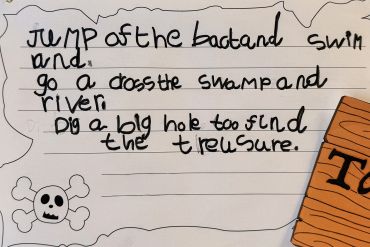 Jump of the baotand swim
and.
go a crossthe swamp and
river.
Dig a big hole too find
the treusure.